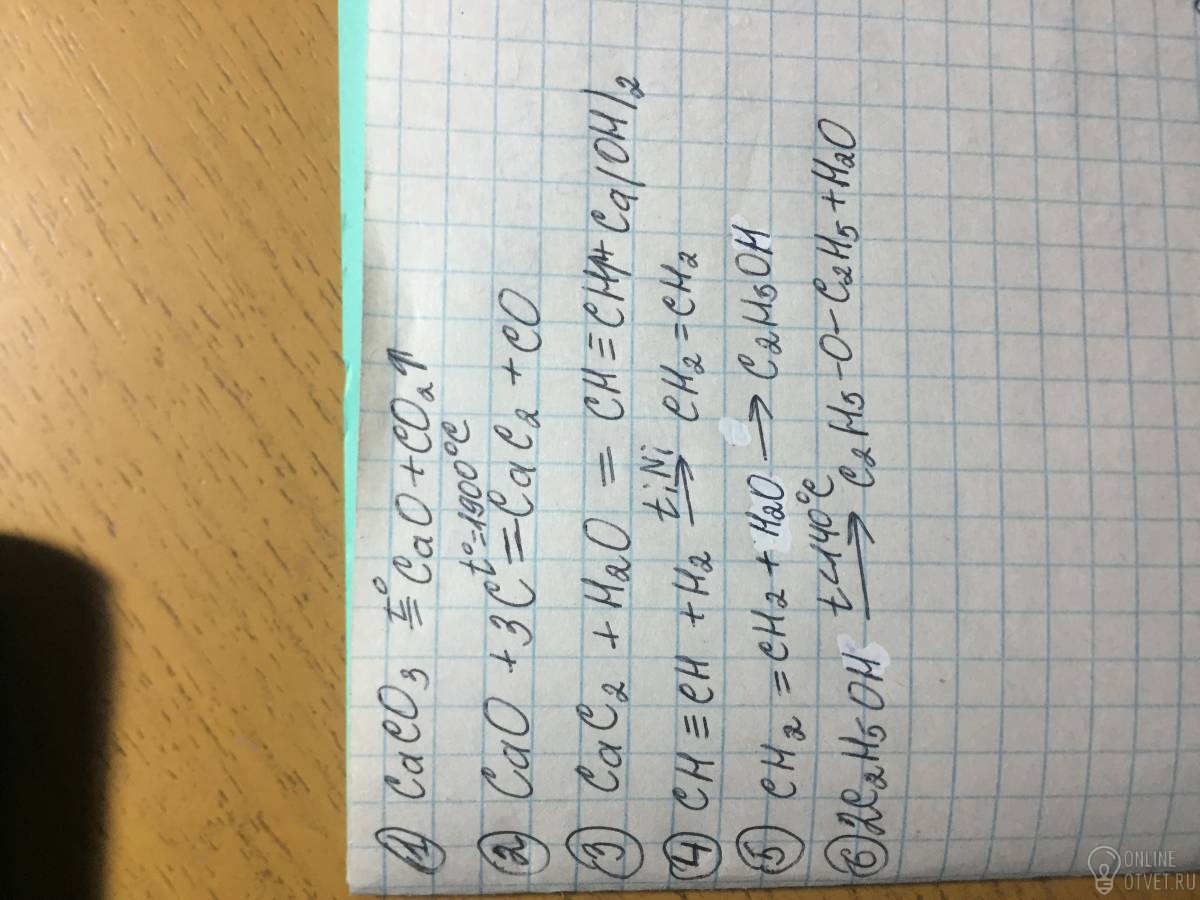 ① CaCO₃ =t°= CaO + CO₂↑
② CaO + 3C =t°=1900°C= CaC₂ + CO
③ CaC₂ + H₂O = CH≡CH↑ + Ca(OH)₂
④ CH≡CH + H₂ –t; Ni→ CH₂=CH₂
⑤ CH₂=CH₂ + H₂O → C₂H₅OH
⑥ 2C₂H₅OH –t<140°C→ C₂H₅-O-C₂H₅ + H₂O
ONLINE
OTVET.RU